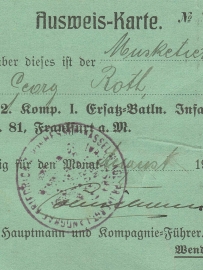 Ausweis-Karte. №
ber dieses ist der Musketie
Georg Roth,
2. Komp. I. Ersatz-Batln. Infa
. 81, Frankfurt a. M.
ig für den Monat August 19
Hauptmann und Kompagnie-Führer.
Wend